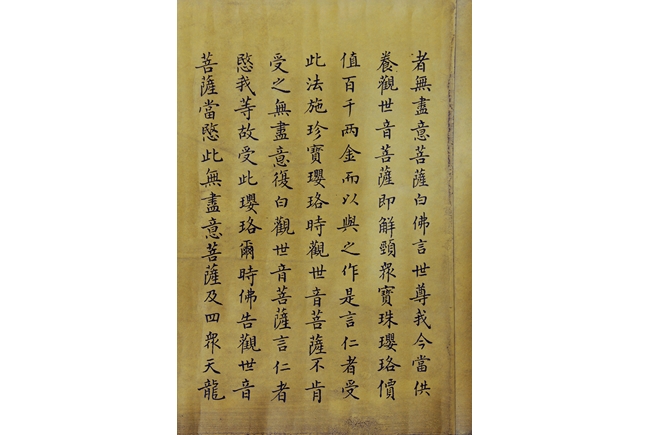 者無盡意菩薩白佛言世尊我今當供
養觀世音菩薩即解頸眾寶珠瓔珞價
值百千两金而以與之作是言仁者受
此法施珍寶瓔珞時觀世音菩薩不肯
受之無盡意復白觀世音菩薩言仁者
愍我等故受此瓔珞爾時佛告觀世音
菩薩當愍此無盡意菩薩及四眾天龍